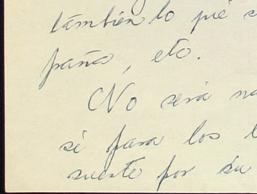 también lo pié
paña, etc.
No será
sé para los
suerte por su